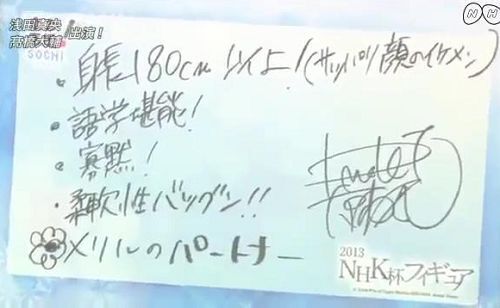 NHK
浅田真央
高橋大輔 出演!
SOCHI
・身長180cm以上!(サッパリ顔のイケメン)
・語学堪能!
・寡黙!
・柔軟性バツグン!!
メリルのパートナー
2013
NHK杯フィギュア